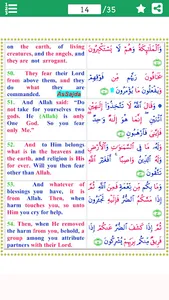 14 /35
on the earth, of living
creatures, and the angels, and
they are not arrogant.
وَٱلۡمَلَٰٓئِكَةُ وَهُمۡ لَا يَسۡتَكۡبِرُونَ
50. They fear their Lord
from above them, and they
do what they are
commanded. AsSajda
يَخَافُونَ رَبَّهُم مِّن فَوۡقِهِمۡ
وَيَفۡعَلُونَ مَا يُؤۡمَرُونَ
51. And Allah said: "Do
not take for yourselves two
gods. He (Allah) is only
One God. So you fear
only Me."
وَقَالَ ٱللَّهُ لَا تَتَّخِذُوٓاْ إِلَٰهَيۡنِ
ٱثۡنَيۡنِۖ إِنَّمَا هُوَ إِلَٰهٞ وَٰحِدٞ
فَإِيَّٰيَ فَٱرۡهَبُونِ
52. And to Him belongs
what is in the heavens and
the earth, and religion is His
for ever. Will you then fear
other than Allah.
وَلَهُۥ مَا فِي ٱلسَّمَٰوَٰتِ وَٱلۡأَرۡضِ
وَلَهُ ٱلدِّينُ وَاصِبًاۚ أَفَغَيۡرَ ٱللَّهِ
تَتَّقُونَ
53. And whatever of
blessings you have, it is
from Allah. Then, when
harm touches you, so unto
Him you cry for help.
وَمَا بِكُم مِّن نِّعۡمَةٖ فَمِنَ ٱللَّهِۖ ثُمَّ
إِذَا مَسَّكُمُ ٱلضُّرُّ فَإِلَيۡهِ تَجۡـَٔرُونَ
54. Then, when He removes
the harm from you, behold, a
group among you attribute
partners with their Lord.
ثُمَّ إِذَا كَشَفَ ٱلضُّرَّ عَنكُمۡ إِذَا
فَرِيقٞ مِّنكُم بِرَبِّهِمۡ يُشۡرِكُونَ